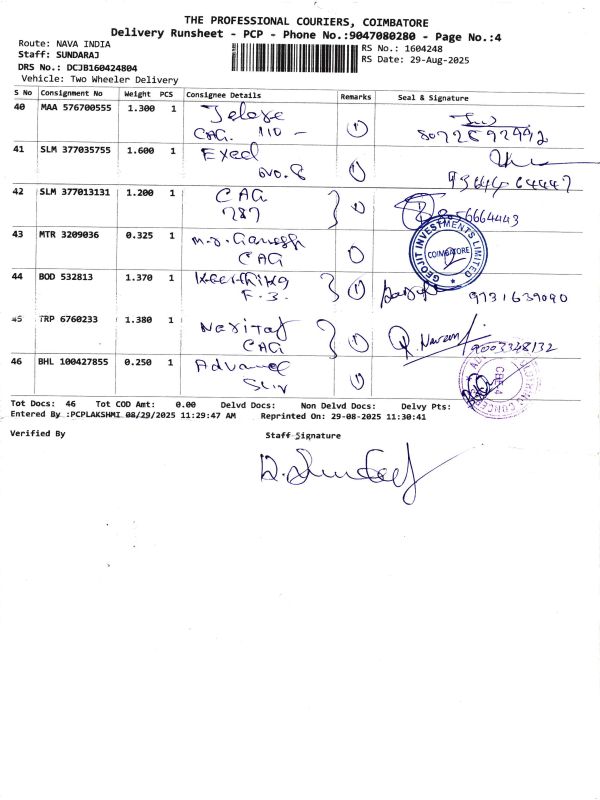 THE PROFESSIONAL COURIERS, COIMBATORE
Delivery Runsheet - PCP - Phone No.:9047080280 - Page No.:4
Route: NAVA INDIA
Staff: SUNDARAJ
DRS No.: DCJB160424804
Vehicle: Two Wheeler Delivery
RS No.: 1604248
RS Date: 29-Aug-2025
S No Consignment No Weight PCS Consignee Details Remarks Seal & Signature
40 MAA 576700555 1.300 1
CAG. 110 - 1
41 SLM 377035755 1.600 1 Exed 1
42 SLM 377013131 1.200 1 CAG 1
787
43 MTR 3209036 0.325 1 M.S. Ganesh
CAG
GEOJIT INVESTMENTS LIMITED
COIMBATORE
44 BOD 532813 1.370 1 1
F.3. 9731639090
45 TRP 6760233 1.380 1 1 R. Naveen
CAG 9003348132
46 BHL 100427855 0.250 1 Advance 1
Tot Docs: 46 Tot COD Amt: 0.00 Delvd Docs: Non Delvd Docs: Delvy Pts:
Entered By :PCPLAKSHMI 08/29/2025 11:29:47 AM Reprinted On: 29-08-2025 11:30:41
Verified By Staff Signature